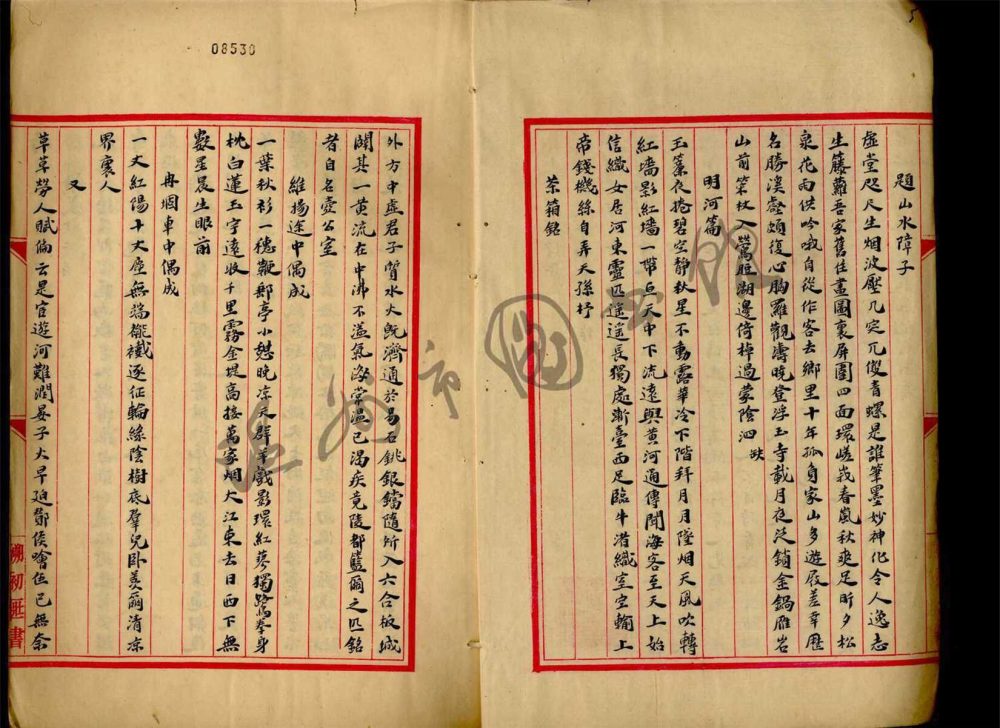 題山水障子
虛堂咫尺生烟波壓几突兀復青螺是誰筆墨妙神化令人逸志
生藤蘿吾家舊住畫圖裏屏圍四面環嵯峩春嵐秋爽足昕夕松
泉花雨供吟哦自從作客去鄉里十年孤負家山多遊屐差幸歷
名勝溪壑頗復心胸羅觀濤曉登浮玉寺載月夜泛鎖金鍋雁岩
山前策杖入鶯脰湖邊倚棹過蒙陰泗
明河篇
玉簾夜捲碧空靜秋星不動露華冷下階拜月月墮烟天風吹轉
紅墻影紅墻一帶亘天中下流遠與黃河通傳聞海客至天上始
信織女居河東靈匹遙遙長獨處漸臺西足臨牛渚織室空輸上
帝錢機絲自弄天孫杼
茶箱銘
外方中虛君子質水火旣濟通於易石銚銀鐺隨所入六合板城
闢其一黃流在中沸不溢氣汝常温已渴疾竟陵都籃爾之匹銘
者自名壺公室
維揚途中偶成
一葉秋衫一穗鞭郵亭小憩晚凉天群羊戲影環紅蓼獨鷺拳身
枕白蓮玉宇遠收千里霧金堤高接萬家烟大江東去日西下無
數星晨生眼前
冉堌車中偶成
一丈紅陽十丈塵無端襤襶逐征輪綠陰樹底羣兒卧羡爾清凉
界裏人
又
草草勞人賦倫云是官遊河難潤晏子大旱迎鄭侯噲伍已無奈
08530